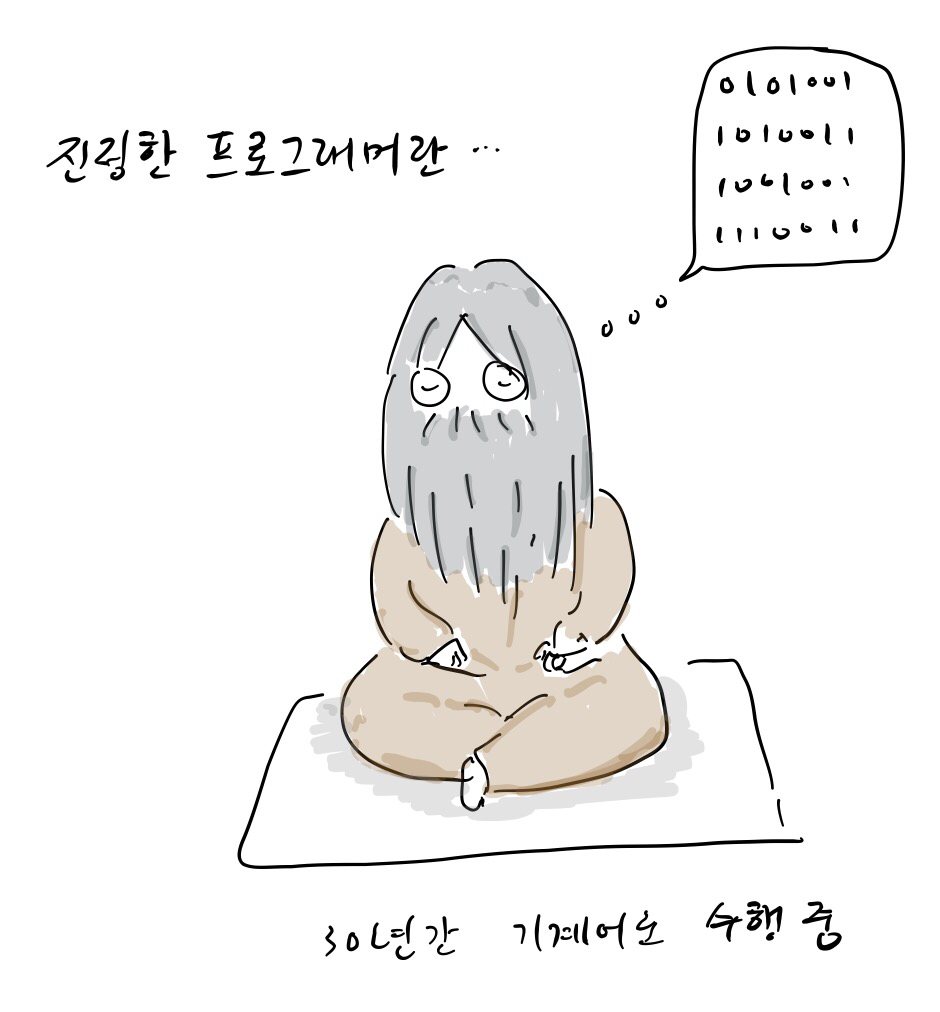 진정한 프로그래머란 ...
0101001
1010011
1001001
1110011
30년간 기계어로 수행 중